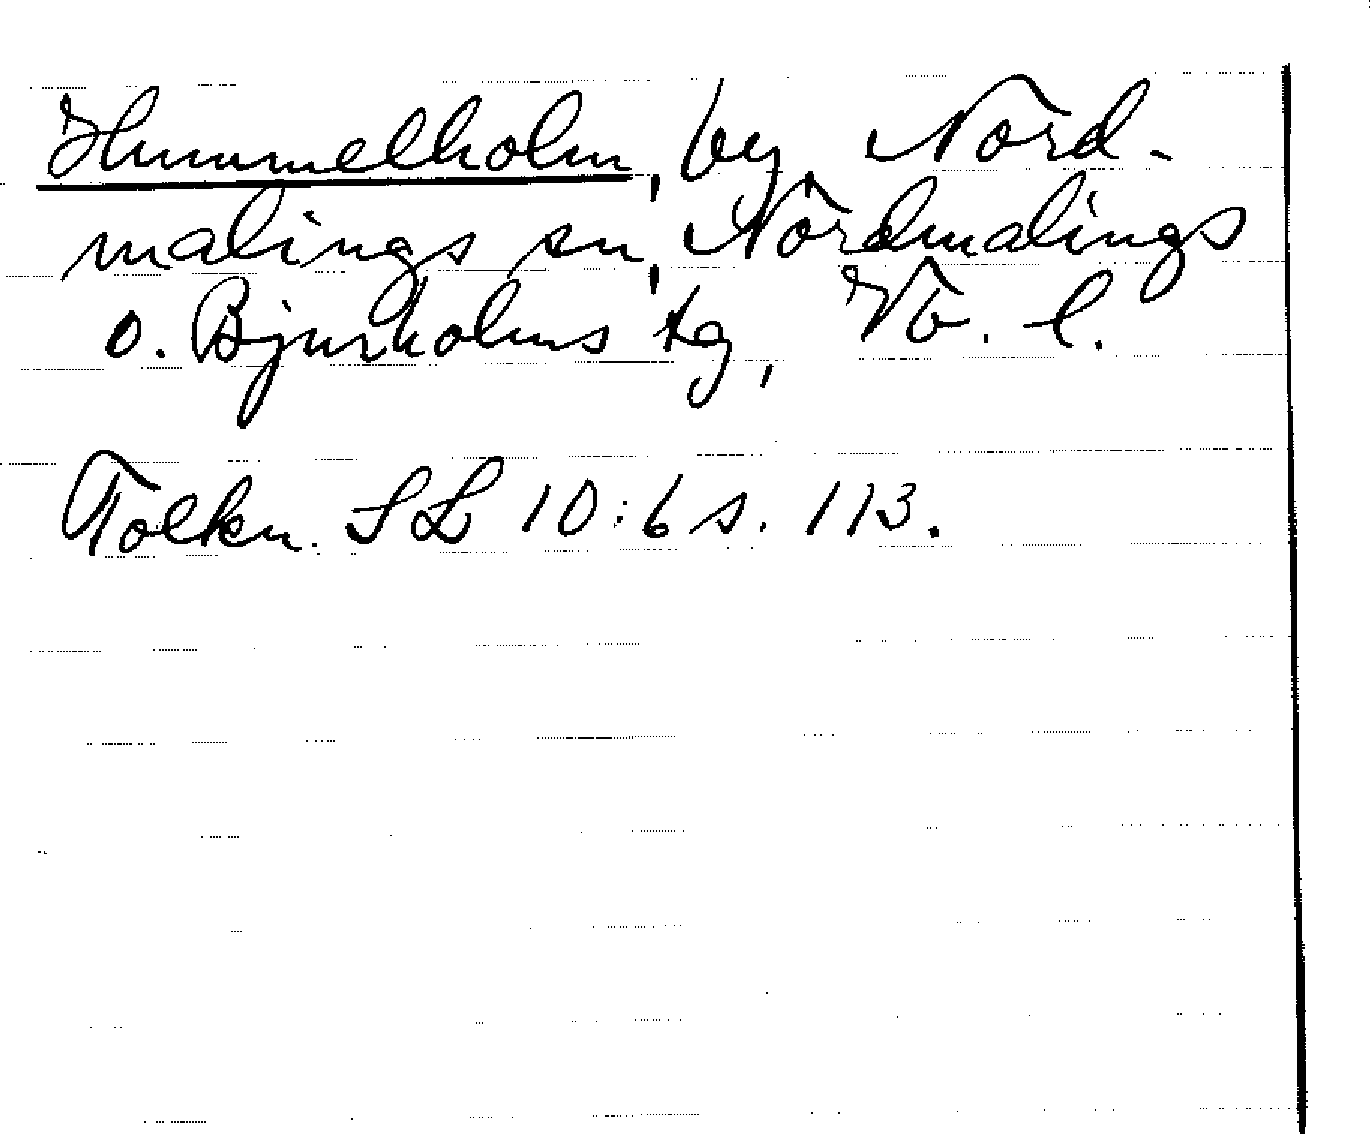 Hummelholm, by, Nord-
malings sn, Nordmalings
o. Bjurholms tg, Vb. l.
Tolkn. SL 10:6 s. 113.